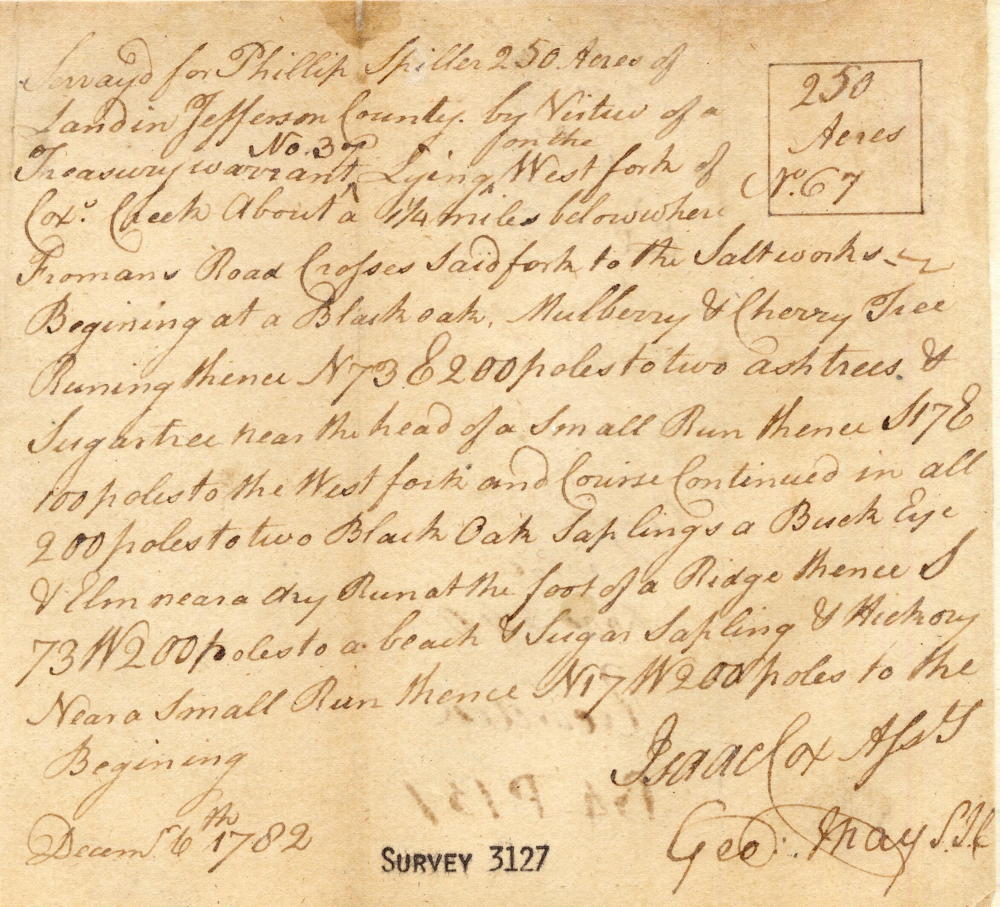 Servay'd for Phillip Spiller 250 Acres of
Land in Jefferson County. by Virtue of a
Treasury warrant ^ No. 37 Lying ^ on the West fork of
Cox's Creek About a 1/4 miles below where
Fromans Road Crosses Said fork to the Saltworks
Begining at a Black oak, Mulberry & Cherry Tree
Runing thence N73 E 200 poles to two ash trees &
Sugartree near the head of a Small Run thence S17E
100 poles to the West fork and Course Continued in all
200 poles to two Black Oak Saplings a Buck Eye
& Elm near a dry Run at the foot of a Ridge thence S
73 W 200 poles to a beach & Sugar Sapling & Hickory
Near a Small Run thence N17 W 200 poles to the
Begining
Isaac Cox Asst
Decemr. 6th 1782
Geo: May S.J.C
250
Acres
No. 67
SURVEY 3127